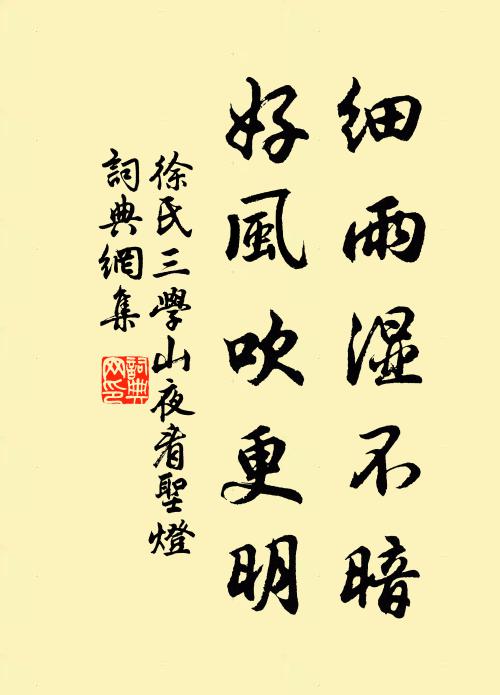 細雨湿不暗
好風吹更明
徐氏三學山夜看聖燈
詞典網集
詞典网印